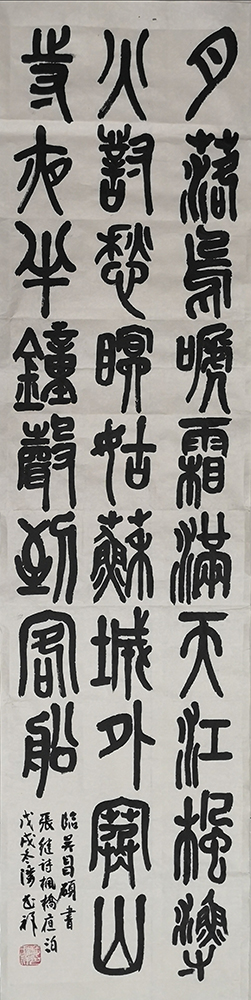 月落烏嗁霜滿天江楓漁
火對愁眠姑蘇城外寒山
寺夜半鐘聲到客船
臨吳昌碩書
張繼詩楓橋夜泊
戊戌冬